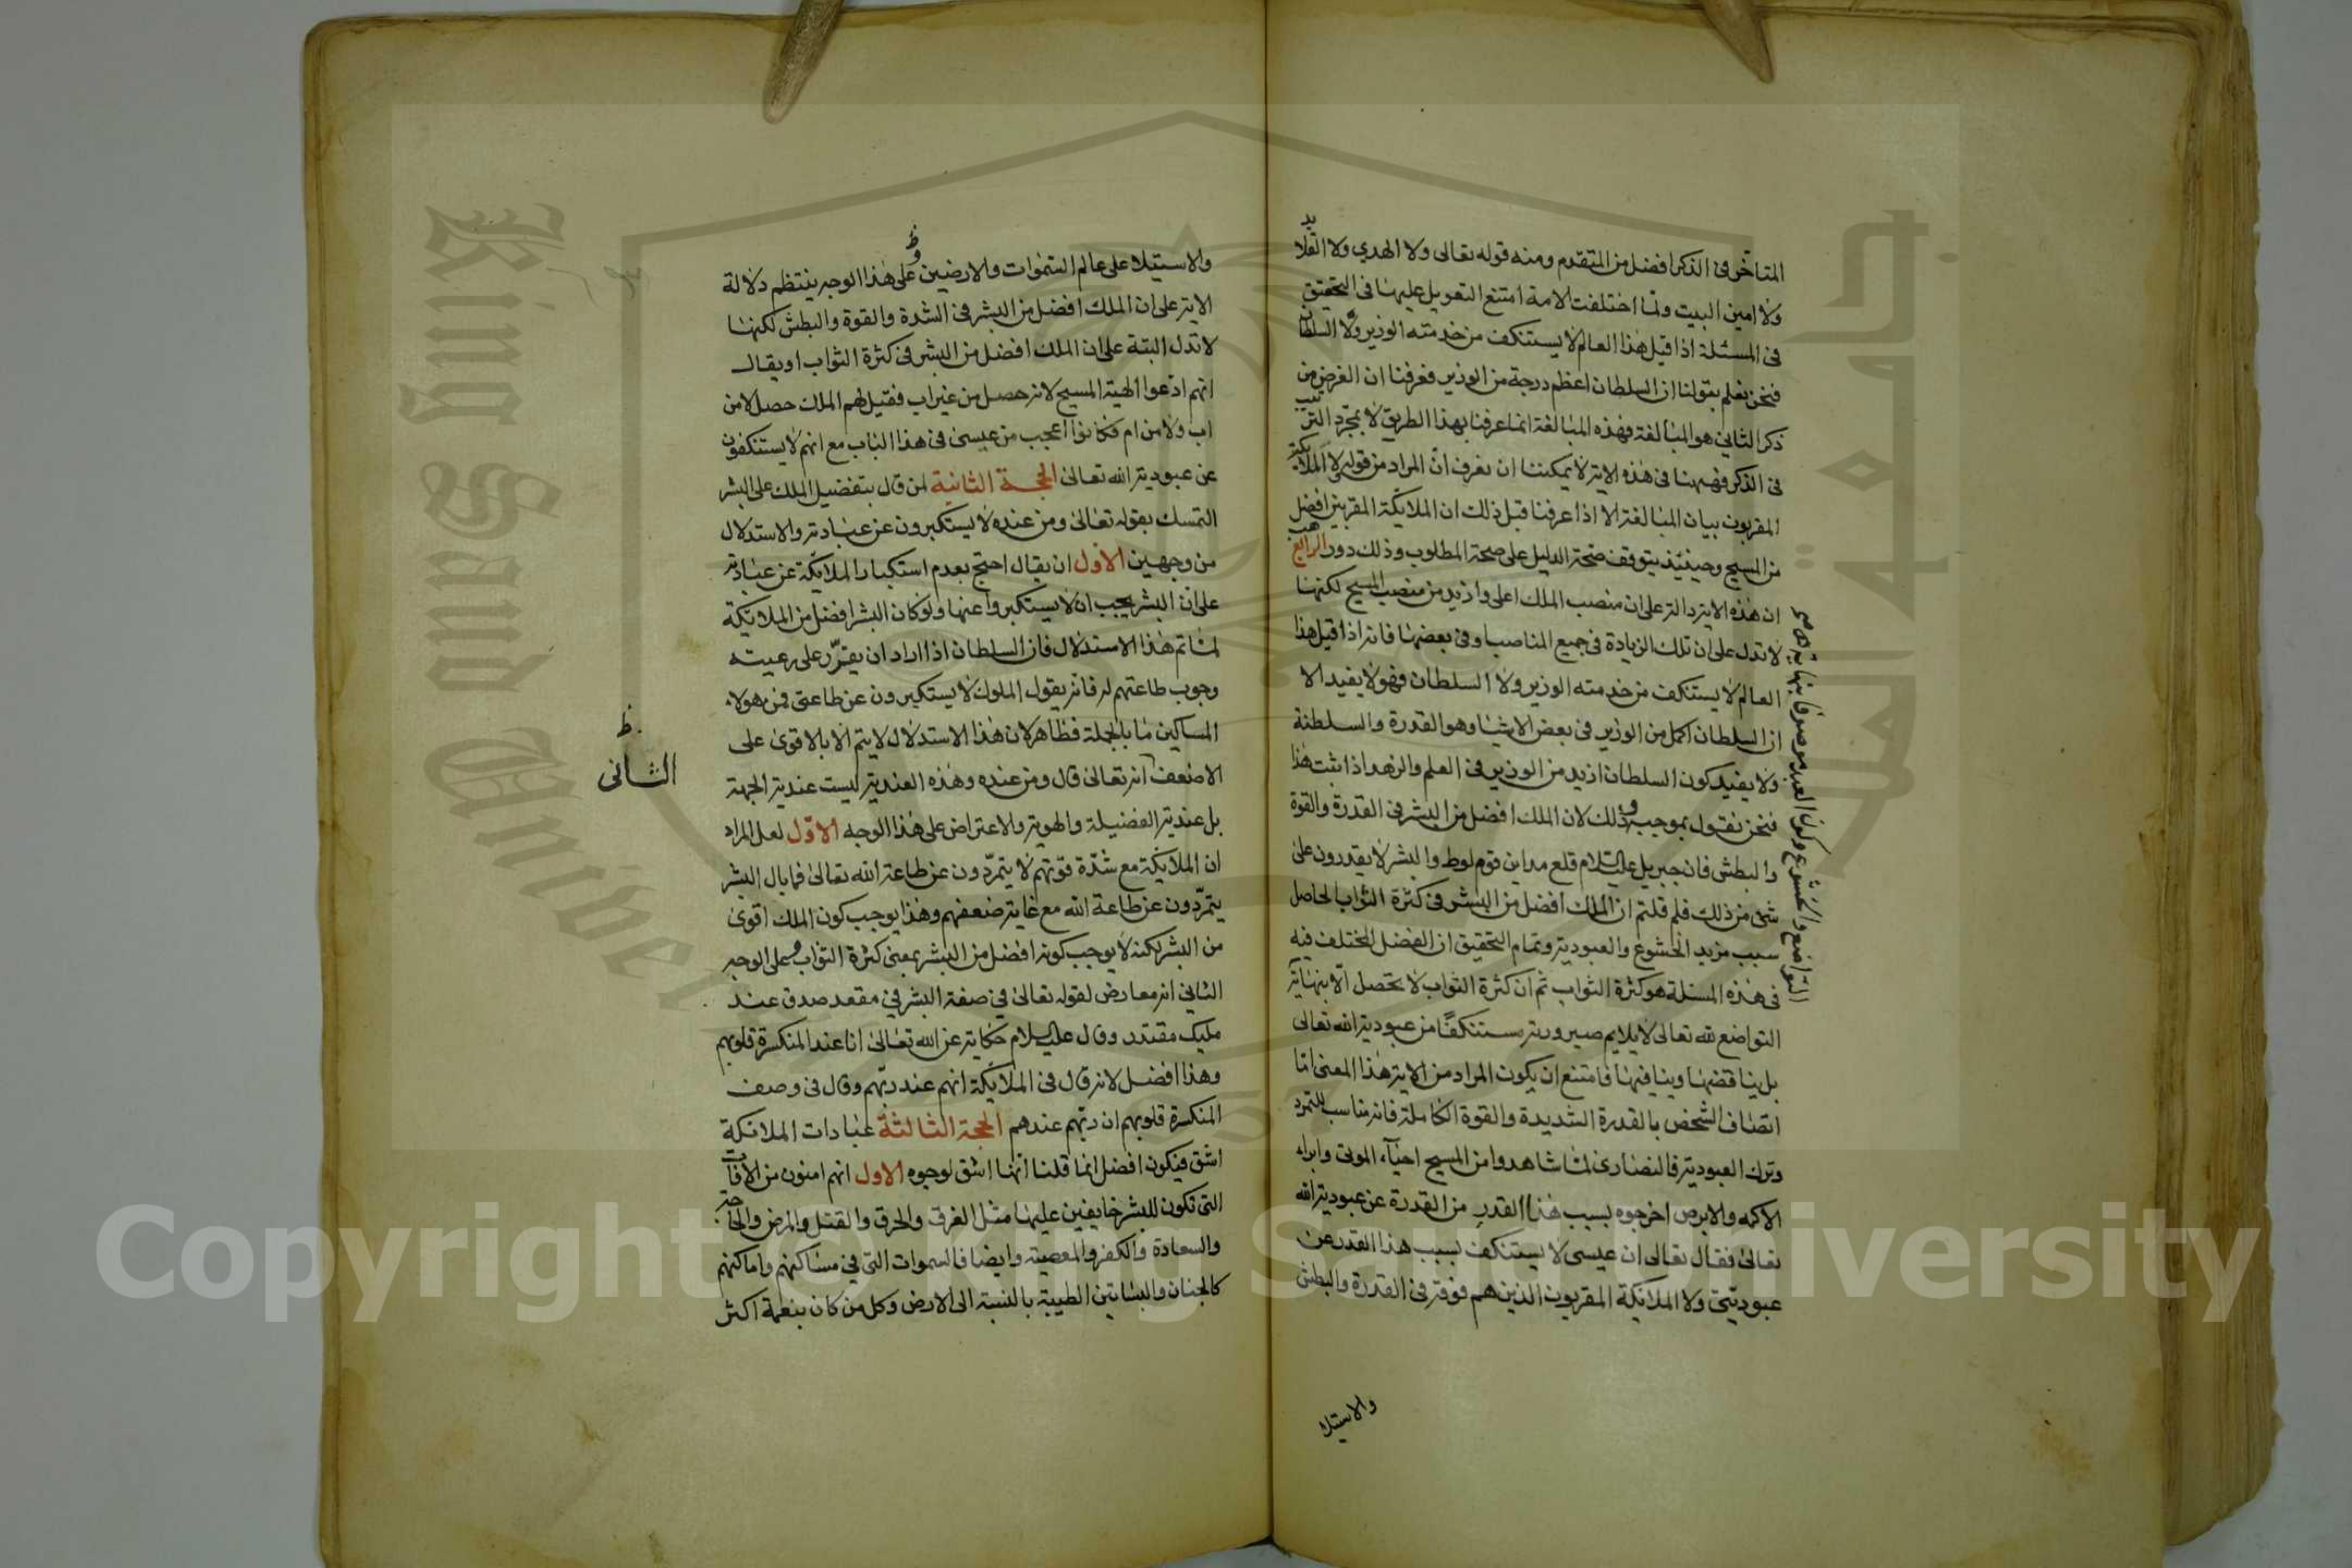 المتاخر فى الذكر افضل من المتقدم ومنه قوله تعالى ولا الهدي ولا القلايد
ولا امين البيت ولما اختلفت الامة امتنع التعويل عليها فى التحقيق
فى المسئلة اذا قيل هذا العالم لا يستنكف من خدمته الوزير ولا السلطان
فنحن نعلم بقولنا ان السلطان اعظم درجة من الوزير فعرفنا ان الغرض من
ذكر الثانى هو المبالغة فهذه المبالغة انما عرفنا بهذا الطريق لا بمجرد الترتيب
فى الذكر فههنا فى هذه الاية لا يمكننا ان نعرف ان المراد من قوله ولا الملائكة
المقربون بيان المبالغة الا اذا عرفنا قبل ذلك ان الملائكة المقربين افضل
من المسيح وحينئذ يتوقف صحة الدليل على صحة المطلوب وذلك دور الرابع هب
ان هذه الاية دالة على ان منصب الملك اعلى وازيد من منصب المسيح لكنها
لا تدل على ان تلك الزيادة فى جميع المناصب او فى بعضها فانه اذا قيل هذا
العالم لا يستنكف من خدمته الوزير ولا السلطان فهو لا يفيد الا
ان السلطان اكمل من الوزير فى بعض الاشيا وهو القدرة والسلطنة
ولا يفيد كون السلطان ازيد من الوزير فى العلم والزهد اذا ثبت هذا
فنحن نقول بموجب وذلك لان الملك افضل من البشر فى القدرة والقوة
والبطش فان جبريل عليه السلام قلع مداين قوم لوط والبشر لا يقدرون على
شى من ذلك فلم قلتم ان الملك افضل من البشر فى كثرة الثواب الحاصل
سبب مزيد الخشوع والعبودية وتمام التحقيق ان الفضل المختلف فيه
فى هذه المسئلة هو كثرة الثواب ثم ان كثرة الثواب لا تحصل الا بنهاية
التواضع لله تعالى لا يلايم صيرورته مستنكفا من عبودية الله تعالى
بل يناقضها وينافيها فامتنع ان يكون المراد من الاية هذا المعنى اما
اتصاف الشخص بالقدرة الشديدة والقوة الكاملة فانه مناسب للتمرد
وترك العبودية فالنصارى لما شاهدوا من المسيح احياء الموتى وابراء
الاكمه والابرص اخرجوه بسبب هذا القدر من القدرة عن عبودية الله
تعالى فقال تعالى ان عيسى لا يستنكف بسبب هذا القدر عن
عبوديتى ولا الملائكة المقربون الذين هم فوقه فى القدرة والبطش
التواضع والخشوع وكون العبد موصوفا بنهاية صح
والاستيلا
والاستيلا على عالم السموات والارضين وعلى هذا الوجه ينتظم دلالة
الاية على ان الملك افضل من البشر فى الشدة والقوة والبطش لكنها
لا تدل البتة على ان الملك افضل من البشر فى كثرة الثواب او يقال
انهم ادعوا الهية المسيح لانه حصل من غير اب فقيل لهم الملك حصل لا من
اب ولا من ام فكانوا اعجب من عيسى فى هذا الباب مع انهم لا يستنكفون
عن عبودية الله تعالى الحجة الثانية لمن قال بتفضيل الملك على البشر
التمسك بقوله تعالى ومن عنده لا يستكبرون عن عبادته والاستدلال
من وجهين الاول ان يقال احتج بعدم استكبار الملائكة عن عبادته
على ان البشر يجب ان لا يستكبروا عنها ولو كان البشر افضل من الملائكة
لما تم هذا الاستدلال فان السلطان اذا اراد ان يقرر على رعيته
وجوب طاعتهم له فانه يقول الملوك لا يستكبرون عن طاعتى فمن هولاء
المساكين ما بالجملة فظاهر لان هذا الاستدلال لا يتم الا بالاقوى على
الاضعف انه تعالى قال ومن عنده وهذه العندية ليست عندية الجهة
ظ الثانى
بل عندية الفضيلة والهوية والاعتراض على هذا الوجه الاول لعل المراد
ان الملائكة مع شدة قوتهم لا يتمردون عن طاعة الله تعالى فما بال البشر
يتمردون عن طاعة الله مع غاية ضعفهم وهذا يوجب كون الملك اقوى
من البشر لكنه لا يوجب كونه افضل من البشر بمعنى كثرة الثواب وعلى الوجه
الثانى انه معارض لقوله تعالى فى صفة البشر فى مقعد صدق عند
مليك مقتدر وقال عليه السلام حكاية عن الله تعالى انا عند المنكسرة قلوبهم
وهذا افضل لانه قال فى الملائكة انهم عند ربهم وقال فى وصف
المنكسرة قلوبهم ان ربهم عندهم الحجة الثالثة عبادات الملائكة
اشق فيكون افضل انما قلنا انها اشق لوجوه الاول انهم امنون من الافات
التى تكون للبشر خايفين عليها مثل الغرق والحرق والقتل والمرض والحاجة
والسعادة والكفر والمعصية وايضا فالسموات التى هى مساكنهم واماكنهم
كالجنان والبساتين الطيبة بالنسبة الى الارض وكل من كان بنعمة اكثر
Copyright © King Saud University
King Saud University
جامعة الملك